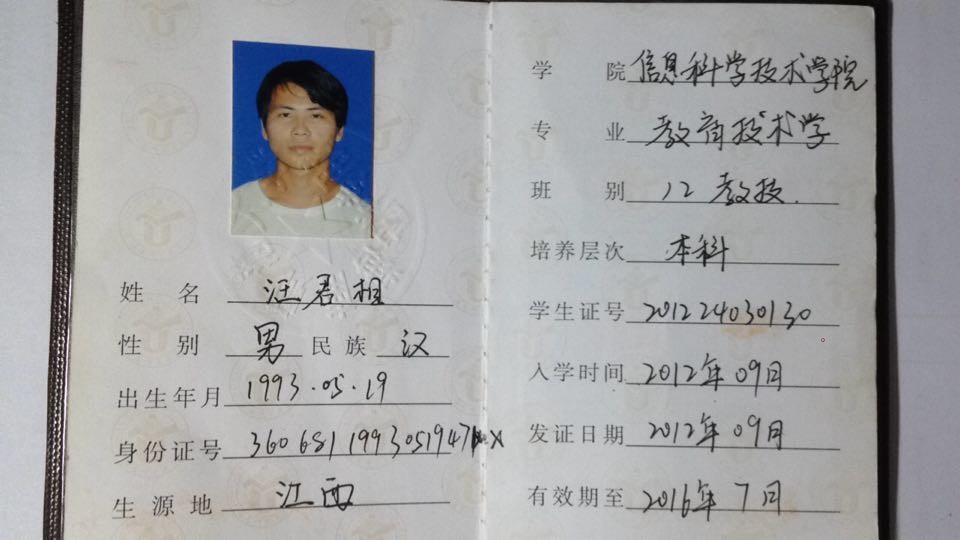 姓名 汪君相
性别 男 民族 汉
出生年月 1993.05.19
身份证号
生源地 江西
学院 信息科学技术学院
专业 教育技术学
班别 12教技
培养层次 本科
学生证号 201224030130
入学时间 2012年09月
发证日期 2012年09月
有效期至 2016年7月